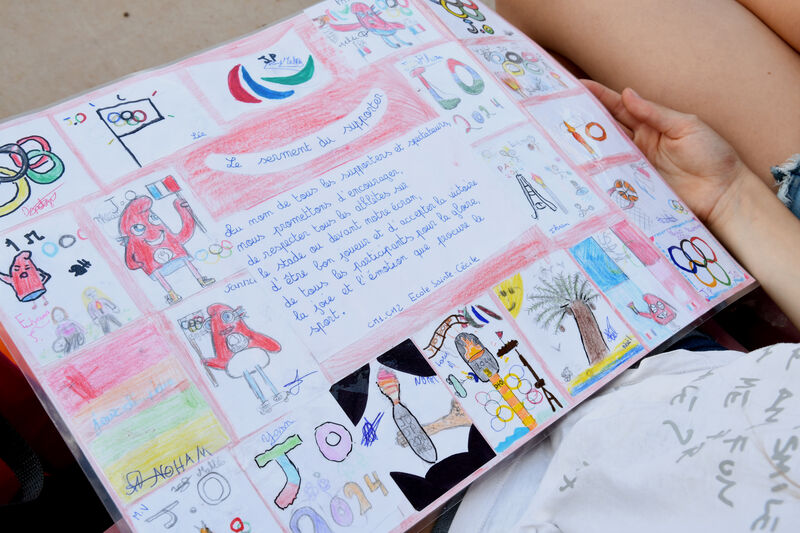 J.O
2024
Léa
Le serment du supporter
Au nom de tous les supporters et spectateurs,
nous promettons d'encourager,
de respecter tous les athlètes sur
le stade ou devant notre écran,
d'être bon joueur et d'accepter la victoire
de tous les participants pour la gloire
la joie et l'émotion que procure le
sport.
CM1.CM2 Ecole Sainte Cécile
Jannah
NOHAM
J.O
Yassin
JO
2024